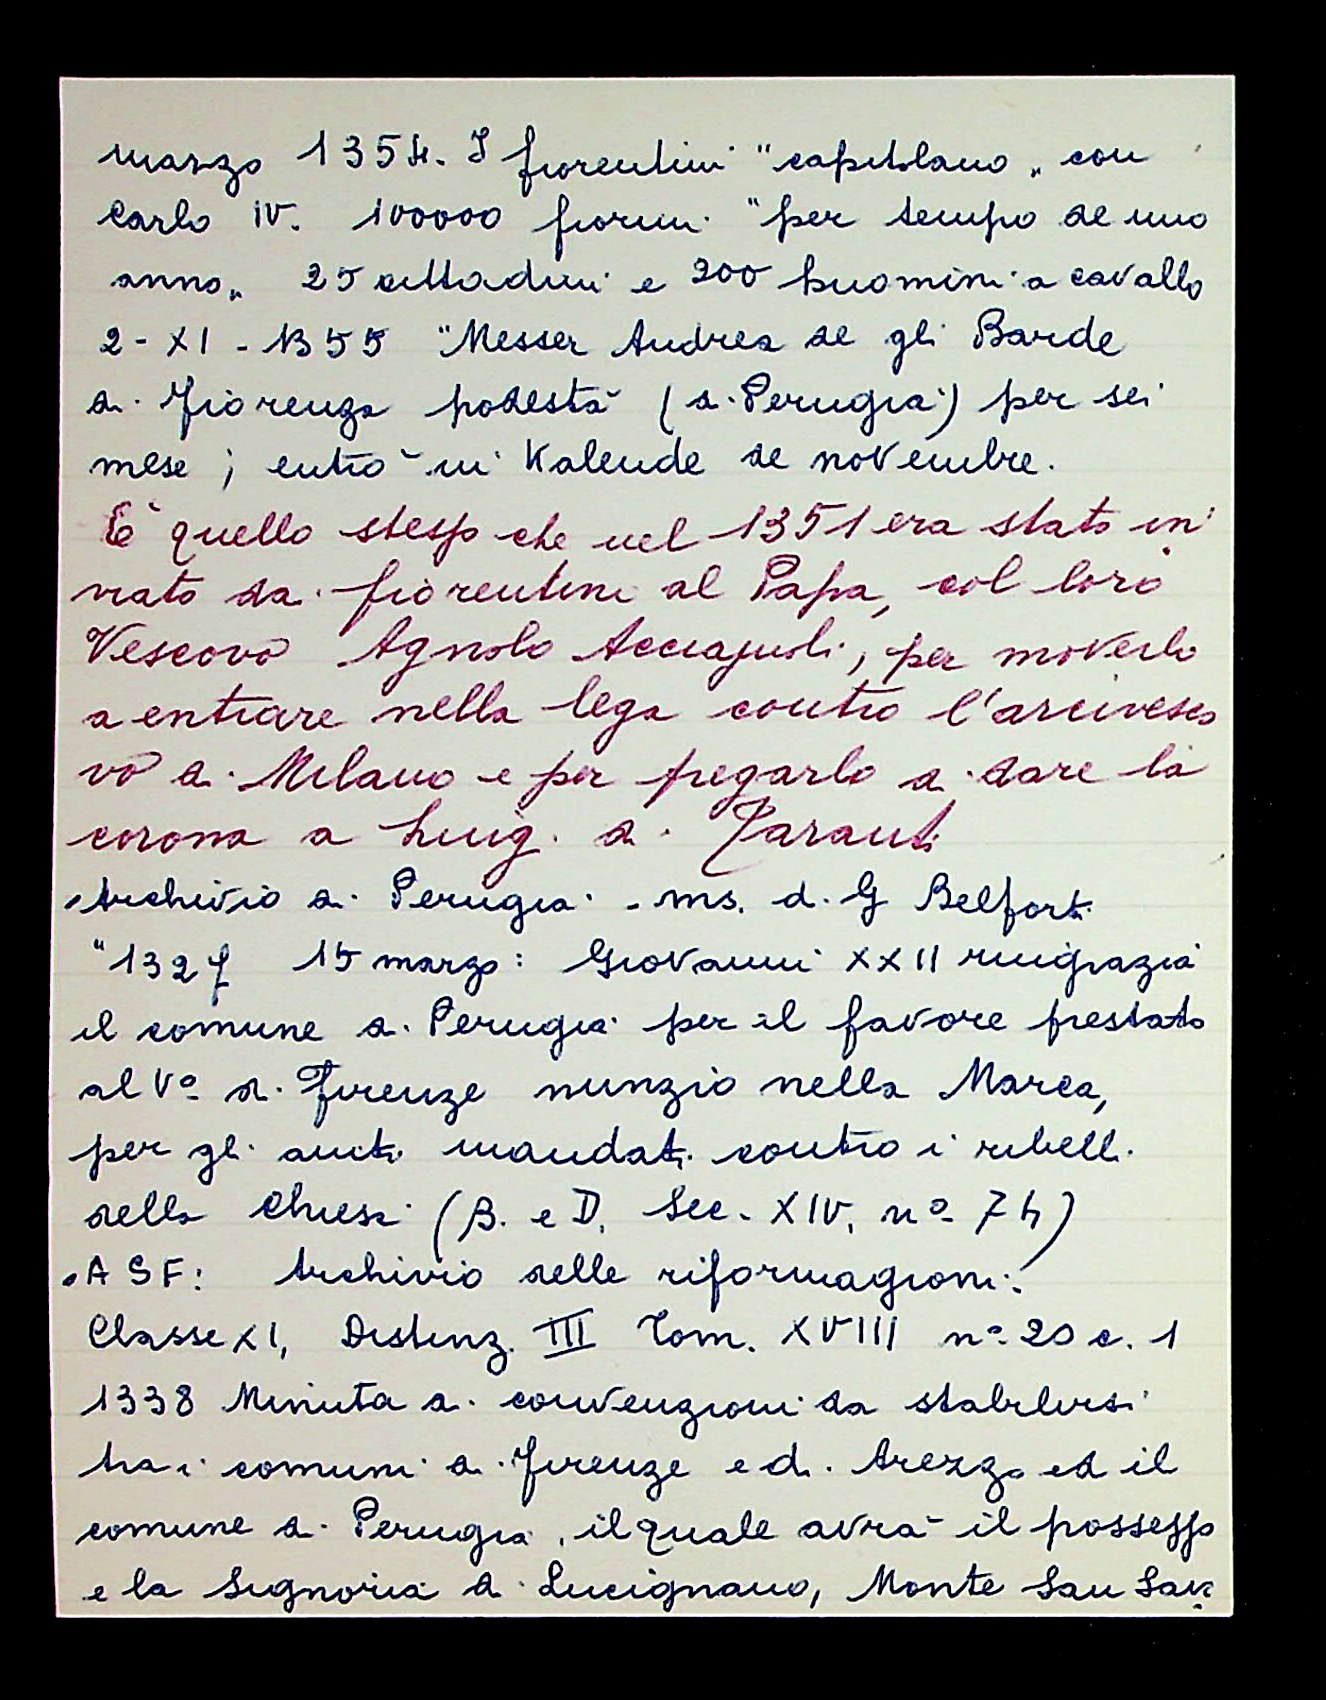 marzo 1354. I fiorentini "capitolano„ con
Carlo IV. 100000 fiorini "per tempo de uno
anno„ 25 cittadini e 200 huomini a cavallo
2-XI-1355 "Messer Andrea de gli Barde
di Fiorenza podestà (di Perugia) per sei
mese; entrò in Kalende de novembre.
E' quello stesso che nel 1351 era stato in
viato da fiorentini al Papa, col loro
Vescovo Agnolo Acciajuoli, per moverlo
a entrare nella lega contro l'arcivesco
vo di Milano e per pregarlo di dare la
corona a Luigi di Taranto
•Archivio di Perugia - ms. d. G Belforti
"1327 15 marzo: Giovanni XXII ringrazia
il comune di Perugia per il favore prestato
al Vo di Firenze nunzio nella Marca,
per gli aiuti mandati contro i ribelli
della Chiesa (B. e D. Sec. XIV, no 74)
•ASF: Archivio delle riformagioni:
Classe XI, Distinz. III Tom. XVIII no 20 c. 1
1338 Minuta di convenzioni da stabilirsi
tra i comuni di Firenze e di Arezzo ed il
comune di Perugia, il quale avrà il possesso
e la Signoria di Lucignano, Monte San Savi